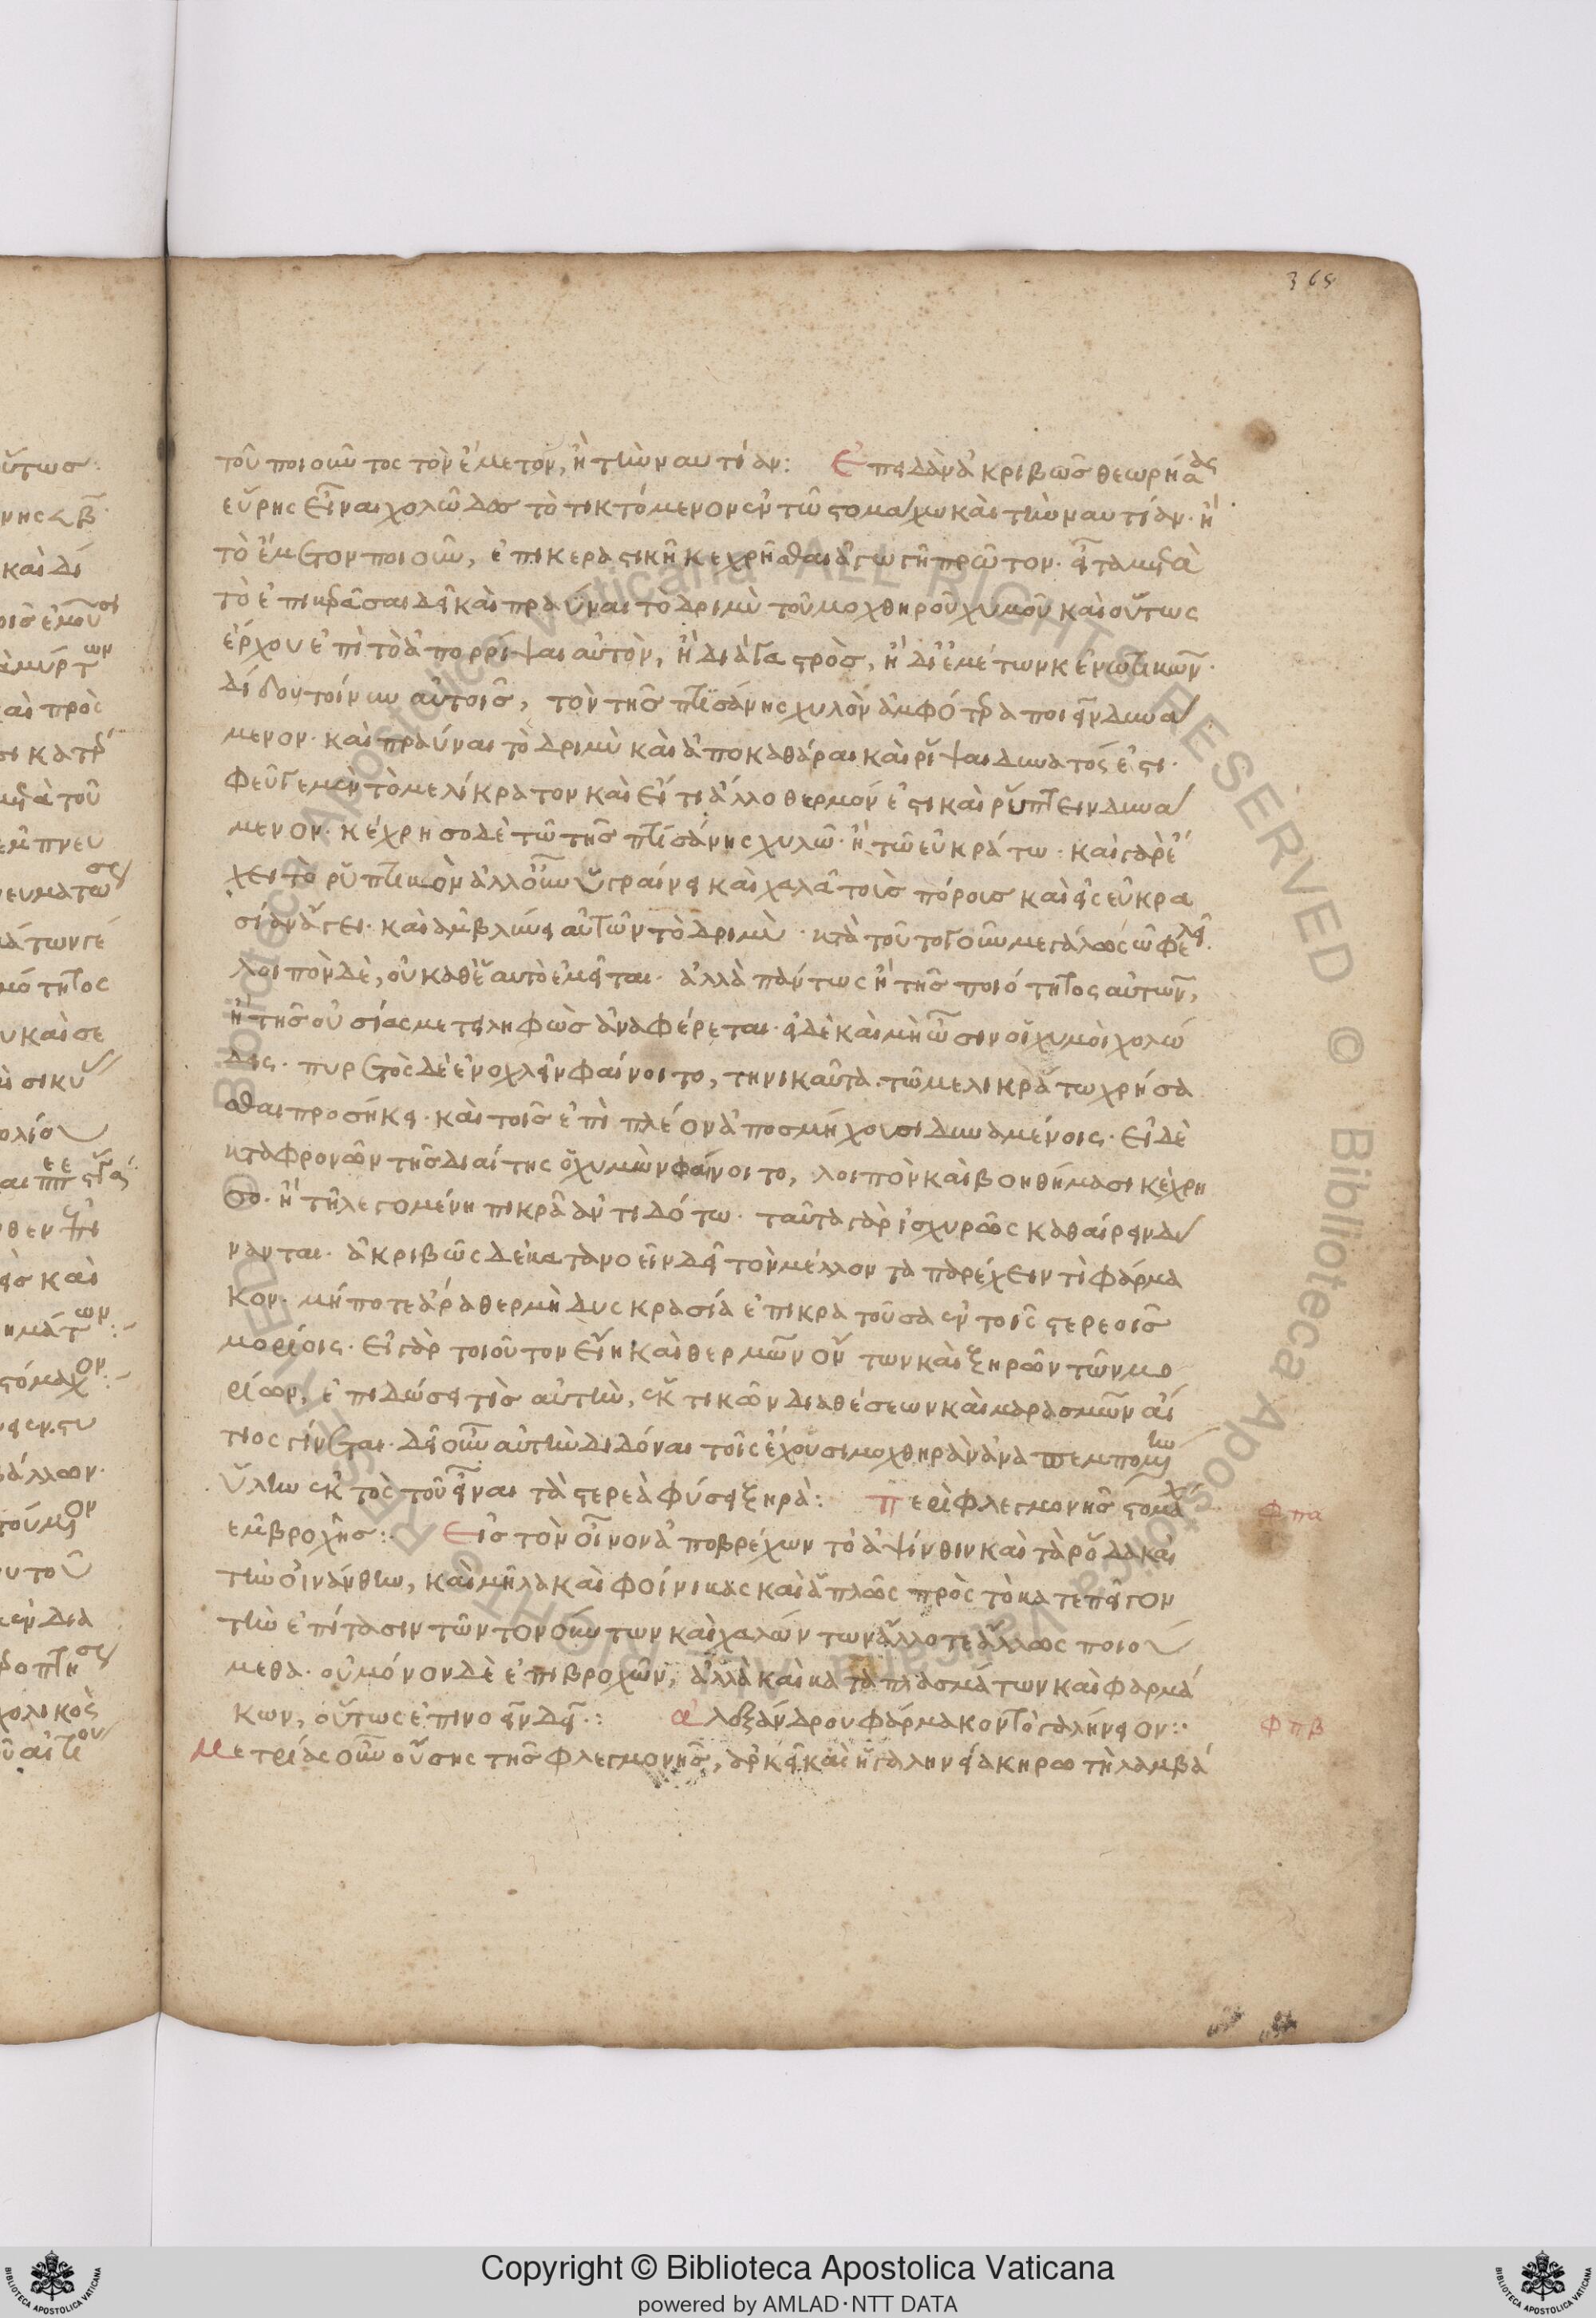 365
τοῦ ποιοῦντος τὸν ἔμετον, ἢ τὴν ναυτίαν: Ἐπειδὰν ἀκριβῶς θεωρήσας
εὕρης εἶναι χολῶδες τὸ τικτόμενον ἐν τῶ στομάχω καὶ τὴν ναυτίαν· ἢ
τὸ ἔμετον ποιοῦν, ἐπικεραστικῆ κεχρῆσθαι ἀγωγῆ πρῶτον· εἶτα μετὰ
τὸ ἐπικεράσαι δεῖ καὶ πραΰναι το δριμὺ τοῦ μοχθηροῦ χυμοῦ καὶ οὕτως
ἔρχου ἐπὶ τὸ ἀπορρίψαι αὐτὸν, ἢ διὰ γαστρὸς, ἢ δι' ἐμέτων κενωτικῶν·
δίδου τοίνυν αὐτοῖς, τὸν τῆς πτισάνης χυλὸν ἀμφότερα ποιεῖν δυνά
μενον· καὶ πραΰναι τὸ δριμὺ καὶ ἀποκαθάραι καὶ ῥίψαι δυνατός ἐστι·
φεῦγε μὲν τὸ μελίκρατον καὶ εἴ τι ἄλλο θερμόν ἐστι καὶ ῥύπτειν δυνά
μενον· κέχρησο δὲ τῶ τῆς πτισάνης χυλῶ· ἢ τῶ εὐκράτω· καὶ γὰρ ἔ
χει τὸ ῥυπτικὸν ἀλλ' οὖν ὑγραίνει καὶ χαλᾶ τοὺς πόρους καὶ εἰς εὐκρα
σίαν ἄγει· καὶ ἀμβλύνει αὐτῶν τὸ δριμὺ· κατὰ τοῦτο γοῦν μεγάλως ὠφελεῖ·
λοιπὸν δὲ, οὐ καθ' ἑαυτὸ ἐμεῖται· ἀλλὰ πάντως ἢ τῆς ποιότητος αὐτῶν,
ἢ τῆς οὐσίας μετειληφὼς ἀναφέρεται· εἰ δὲ καὶ μὴ ὦσιν οἱ χυμοὶ χολώ
δεις· πυρετὸς δὲ ἐνοχλεῖν φαίνοιτο, τηνικαῦτα τῶ μελικράτω χρήσα
σθαι προσήκει· καὶ τοῖς ἐπὶ πλέον ἀποσμήχουσι δυναμένοις· εἰ δὲ
καταφρονῶν τῆς διαίτης ὁ χυμὸν φαίνοιτο, λοιπὸν καὶ βοηθήμασι κέχρη
σο· ἢ τῆ λεγομένη πικρᾶ ἀντιδότω· ταῦτα γὰρ ἰσχυρῶς καθαίρειν δύ
νανται· ἀκριβῶς δὲ κατανοεῖν δεῖ τὸν μέλλοντα παρέχειν τὸ φάρμα
κον· μήποτε ἄρα θερμὴ δυσκρασία ἐπικρατοῦσα ἐν τοῖς στερεοῖς
μορίοις· εἰ γὰρ τοιοῦτον εἴη καὶ θερμῶν ὄντων καὶ ξηρῶν τῶν μο
ρίων, ἐπιδώσει τις αὐτὴν, ἑκτικῶν διαθέσεων καὶ μαρασμῶν αἴ
τιος γίνεται· δεῖ οὖν αὐτὴν διδόναι τοῖς ἔχουσι μοχθηρὰν ἀναπεμπομένην
ὕλην ἐκτὸς τοῦ εἶναι τὰ στερεὰ φύσει ξηρά: Περὶ φλεγμονῆς στομάχου
ἐμβροχῆς: Εἰς τὸν οἶνον ἀποβρέχων τὸ ἀψίνθιν καὶ τὰ ῥόδα καὶ
τὴν οἰνάνθην, καὶ μῆλα καὶ φοίνικας καὶ ἁπλῶς πρὸς τὸ κατεπεῖγον
τὴν ἐπίτασιν τῶν τονούντων καὶ χαλώντων ἄλλοτε ἄλλως ποιού
μεθα· οὐ μόνον δὲ ἐπιβροχῶν, ἀλλὰ καὶ καταπλασμάτων καὶ φαρμά
κων, οὕτως ἐπινοεῖν δεῖ: Ἀλεξάνδρου φάρμακον τὸ γαλήνειον:
Μετρίας οὖν οὔσης τῆς φλεγμονῆς, ἀρκεῖ καὶ ἡ γαληνεία κηρωτὴ λαμβά
φπα
φπβ
Copyright © Biblioteca Apostolica Vaticana
powered by AMLAD·NTT DATA